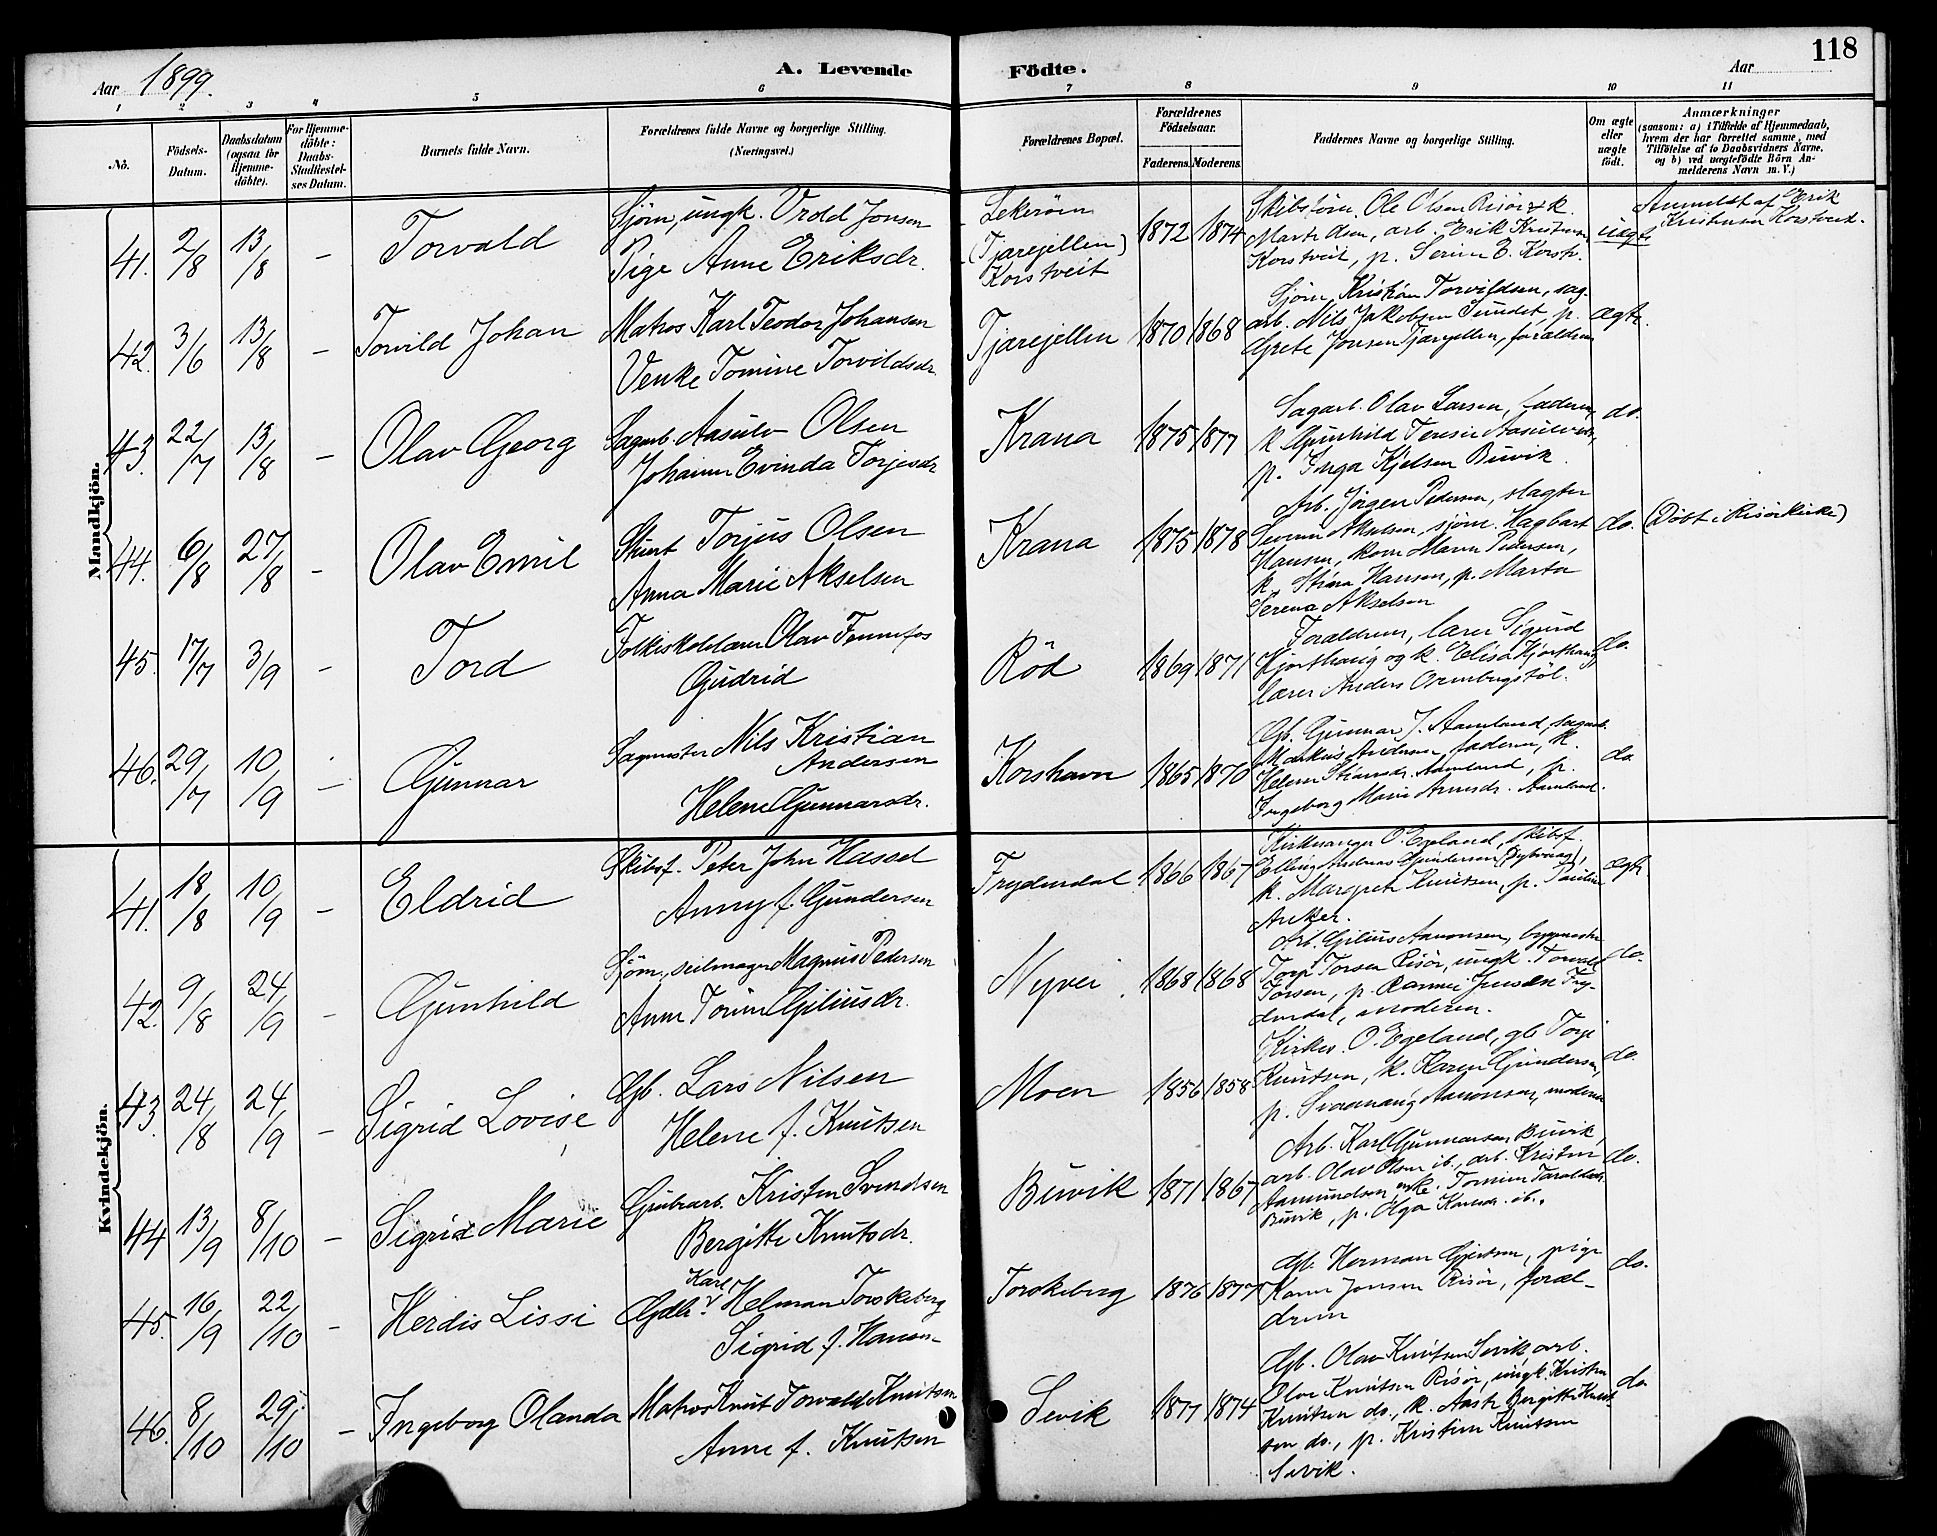 118
Aar 1899.
A. Levende Födte.
Aar
1 2 3 4 5 6 7 8 9 10 11
No.
Födsels-Datum.
Daabsdatum (ogsaa for Hjemme-döbte).
For Hjemme-döbte: Daabs-Stadfæstel-ses Datum.
Barnets fulde Navn.
Forældrenes fulde Navne og borgerlige Stilling.
(Næringsvei.)
Forældrenes Bopæl.
Forældrenes Födselsaar.
Faderens. Moderens.
Faddernes Navne og borgerlige Stilling.
Om ægte eller uægte födt.
Anmærkninger
(saasom: a) i Tilfælde af Hjemmedaab, hvem der har forrettet samme, med Tilföielse af to Daabsvidners Navne, og b) ved uægtefödte Börn An-melderens Navn m. V.)
Mandkjön.
41. 2/8 13/8 – Torvald
Sjöm, ungk. Vrold Jonsen
Pige Anne Eriksdr.
(Tjærejellen)
Korstveit
1872 1874
Skibstöm. Ole Olsen Risör, k.
Marte Olsen, arb. Erik Kristensen
Korstveit, p. Serine E. Korstv.
uægte
Anmeldt af Erik
Kristensen Korstveit.
42. 3/6 13/8 – Torvild Johan
Matros Karl Teodor Johansen
Venke Tomine Torvildsdr.
Tjærejellen
1870 1868
Sjöm. Kristian Torvildsen, sag-
arb. Nils Jakobsen Sundet, p.
Grete Jonsen Tjærejellen, forældrene
ægte.
43. 22/7 13/8 – Olav Georg
Sagarb. Aasulv Olsen
Johanne Evinda Torjesdr
Krana
1875 1877
Sagarb. Olav Larsen, faderen,
k Gunhild Teresie Aasulvsen,
p. Inga Kjelsen Buvik.
do.
44. 6/8 27/8 – Olav Emil
Stuert Torjus Olsen
Anna Marie Akselsen
Krana
1875 1878
Arb. Jörgen Pedersen, slagter
Severin Akselsen, sjöm. Hagbart
Hansen, kone Maren Pedersen,
k. Stina Hansen, p. Marta
Serena Akselsen
do.
(Döbt i Risör kirke)
45. 17/7 3/9 – Tord
Folkeskolelærer Olav Fennefos
Gudrid
Röd
1869 1871
Forældrene, lærer Sigurd
Hjorthaug og k. Elisa Hjorthaug
lærer Anders Ormbugstöl.
do.
46. 29/7 10/9 – Gunnar
Sagmester Nils Kristian
Andersen
Helene Gunnarsdr.
Korshavn
1865 1870
Gb. Gunnar J. Aamland, sagarb.
Markus Andersen, faderen, k.
Helene Stiansdr. Aamland, p.
Ingeborg Marie Arnesdr. Aamland.
do
Kvindekjön.
41. 18/8 10/9 – Eldrid
Skibsf. Peter John Hassel
Anny f. Gundersen
Frydendal
1866 1867
Kirkesanger O. Egeland, skibsf.
Elling Andreas Gundersen (Dybvaag),
k. Margrete Knutsen, p. Pauline
Anker.
ægte
42. 9/8 24/9 – Gunhild
Sjöm., seilmager Magnus Pedersen
Anne Torine Giliusdr.
Nyvei
1868 1868
Arb. Gilius Aanonsen, byggmester
Torje Torsen Risör, ungk. Torvald
Torsen, p. Ranne Jensen Fry-
dendal, moderen.
do.
43. 24/8 24/9 – Sigrid Lovise
Gb. Lars Nilsen
Helene f. Knutsen
Moen
1856 1858
Kirkes. O. Egeland, gb Torje
Knutsen, k. Karen Gundersen,
p. Svanaug Aanonsen, moderen
do.
44 13/9 8/10 – Sigrid Marie
Grubearb. Kristen Svendsen
Bergitte Knutsdr.
Buvik
1871 1867
Arb. Karl Gunnarsen Buvik,
arb. Olav Olsen ib., arb. Kristen
Aamundsen, enke Tomine Taraldsen
Buvik, p. Olga Hansdr. ib.
do.
45. 16/9 22/10 – Herdis Lissi
Karl
Gdbr. Helman Torskeberg
Sigrid f. Hansen
Torskeberg
1876 1877
Gb. Herman Gjertsen, pige
Karen Jensen Risör, foræl-
drene
do.
46. 8/10 29/10 – Ingeborg Olanda
Matros Knut Torvald Knutsen
Anne f. Knutsen
Sevik
1871 1874
Gb. Olav Knutsen Sevik, arb.
Olav Knutsen Risör, ungk. Kristen
Knutsen do., k. Aaste Bergitte Knut-
sen do., p. Kristine Knutsen
Sevik.
do